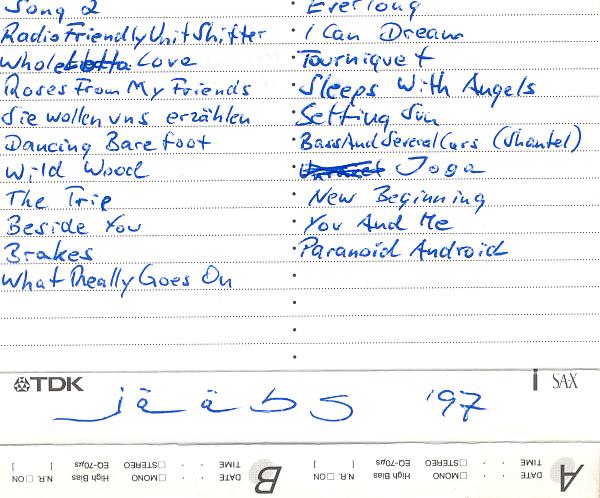 Song 2
RadioFriendlyUnitShifter
Whole Lotta Love
Roses From My Friends
Sie wollen uns erzählen
Dancing Barefoot
Wild Wood
The Trip
Beside You
Brakes
What Really Goes On
Everlong
I Can Dream
Tourniquet
Sleeps With Angels
Setting Sun
BassAndSeveralCars (Shantel)
Joga
New Beginning
You And Me
Paranoid Android
TDK
SA-X
jääbs '97
B
DATE
TIME
N.R. □ON [ ]
High Bias EQ-70µs
□MONO □STEREO
A
DATE
TIME
N.R. □ON [ ]
High Bias EQ-70µs
□MONO □STEREO